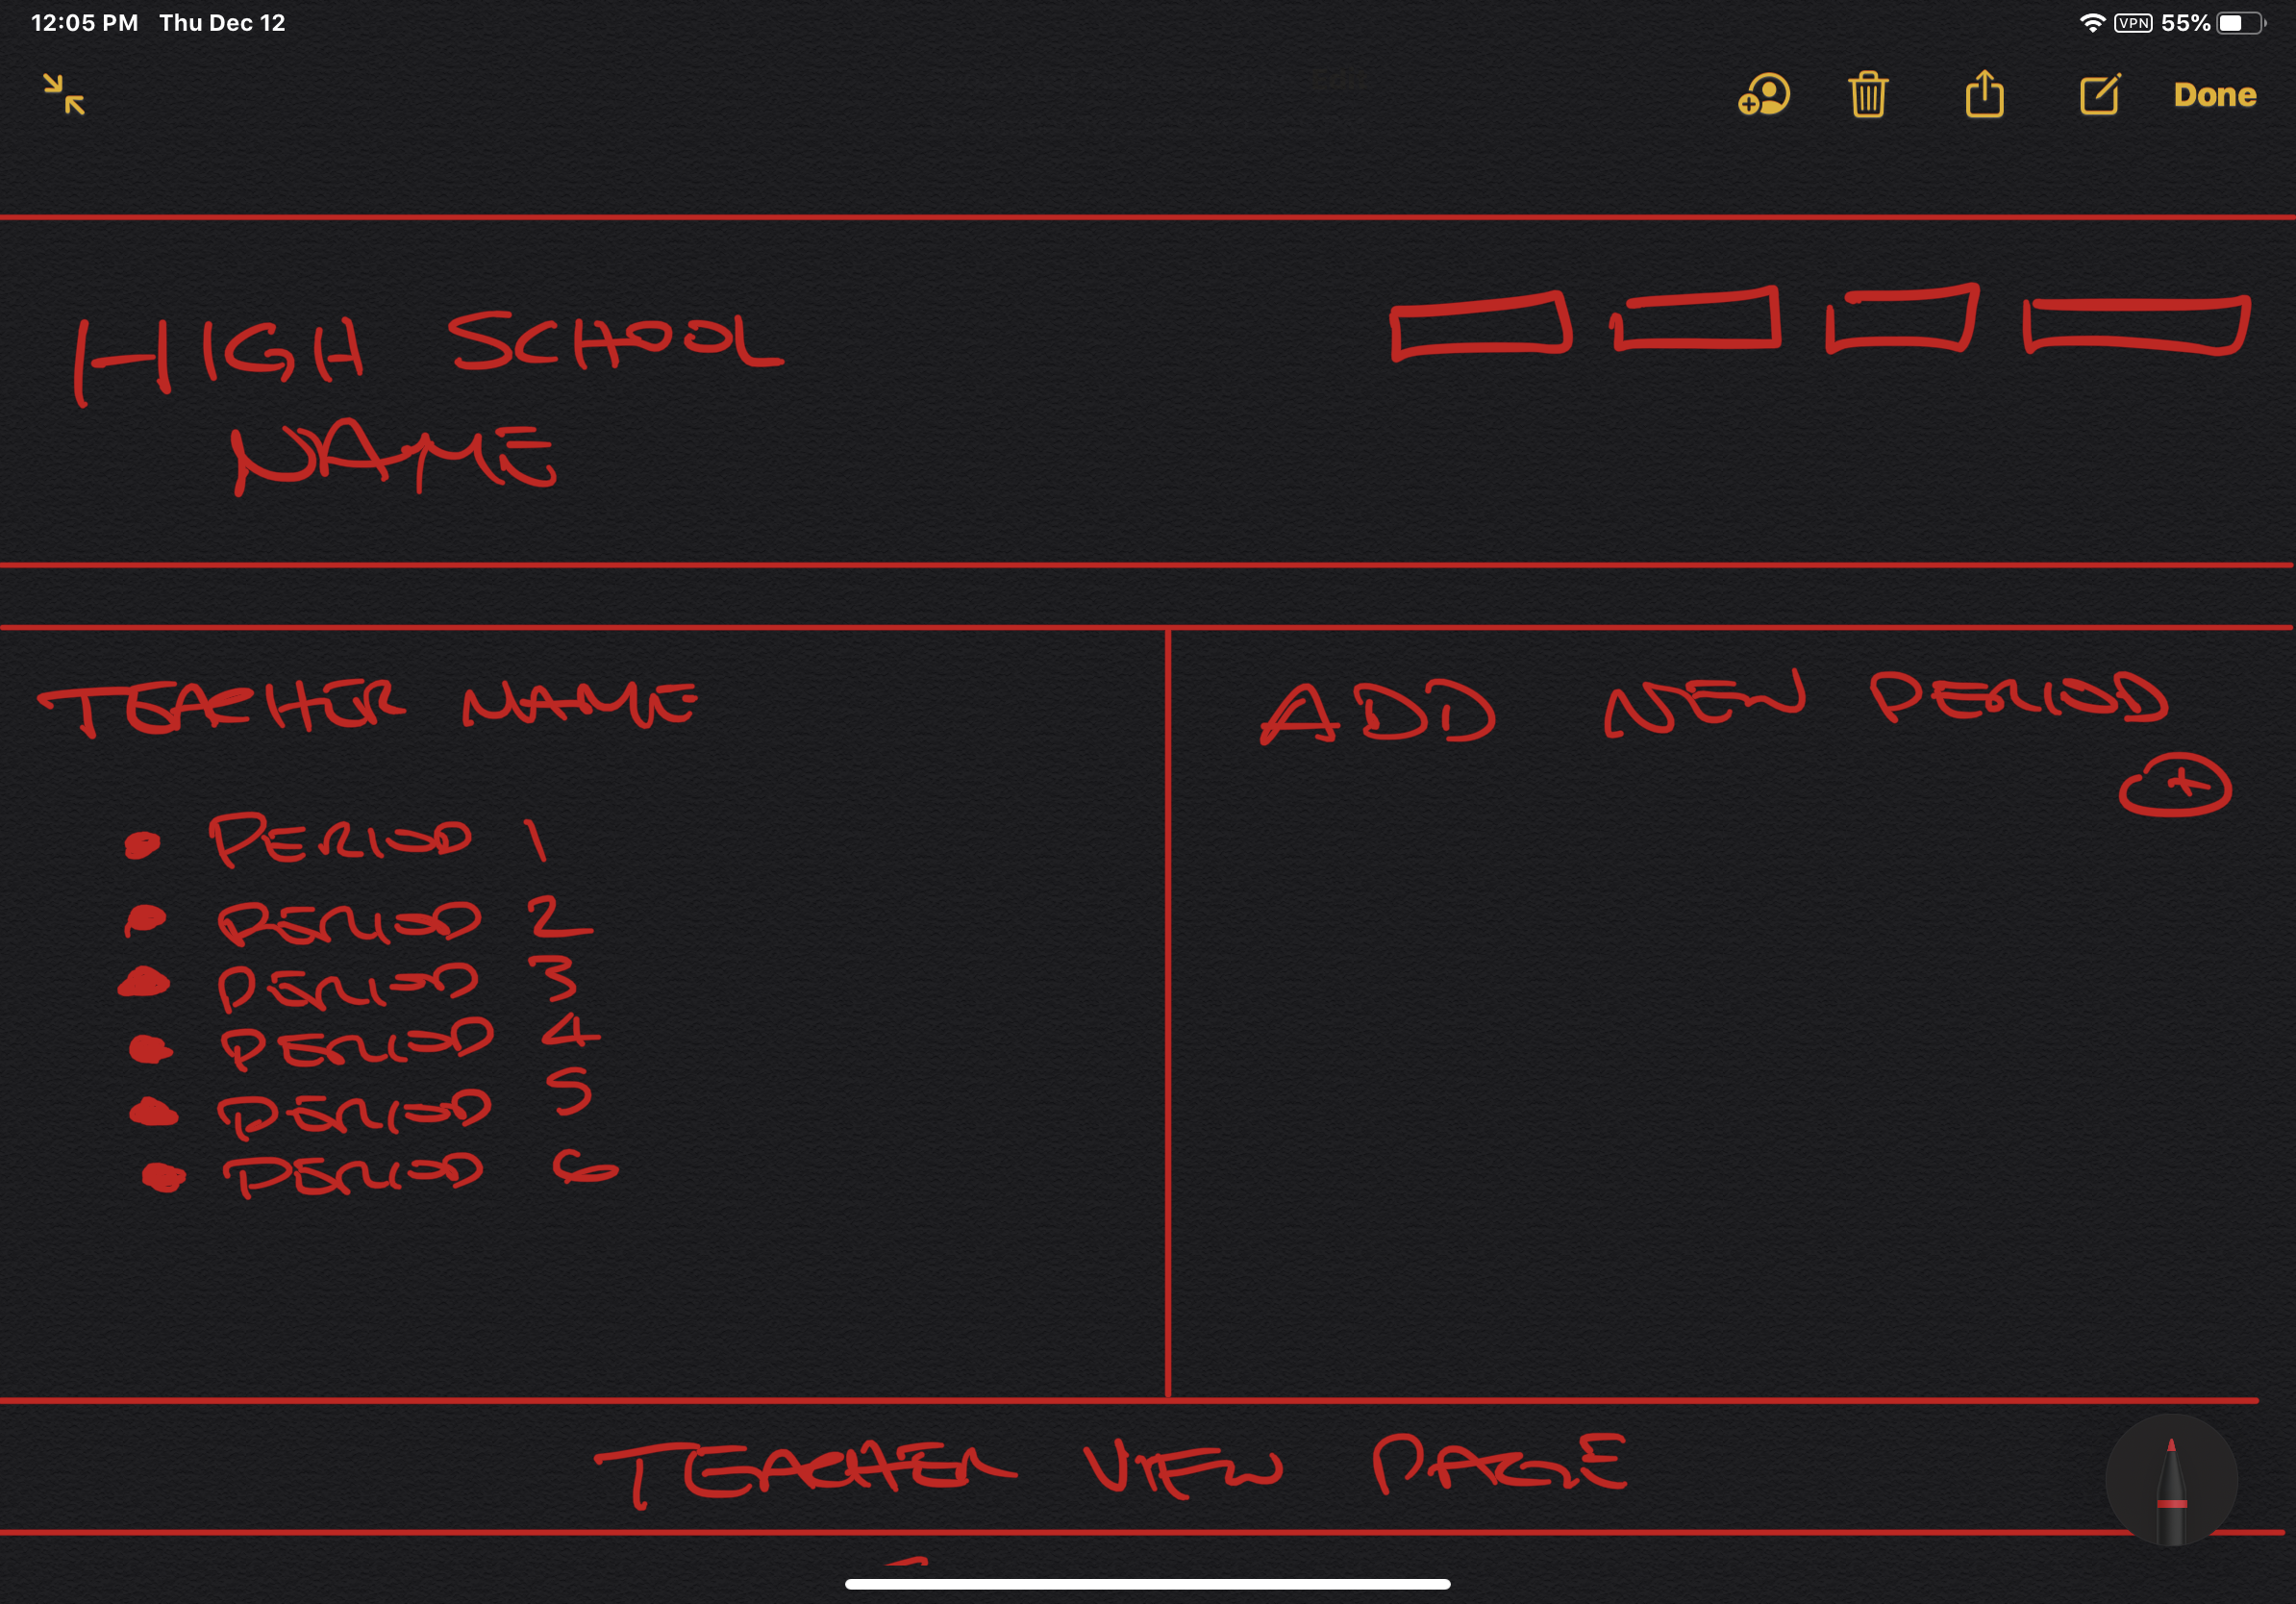 12:05 PM Thu Dec 12
VPN 55%
Done
HIGH SCHOOL
NAME
TEACHER NAME
ADD NEW PERIOD
+
PERIOD 1
PERIOD 2
PERIOD 3
PERIOD 4
PERIOD 5
PERIOD 6
TEACHER VIEW PAGE